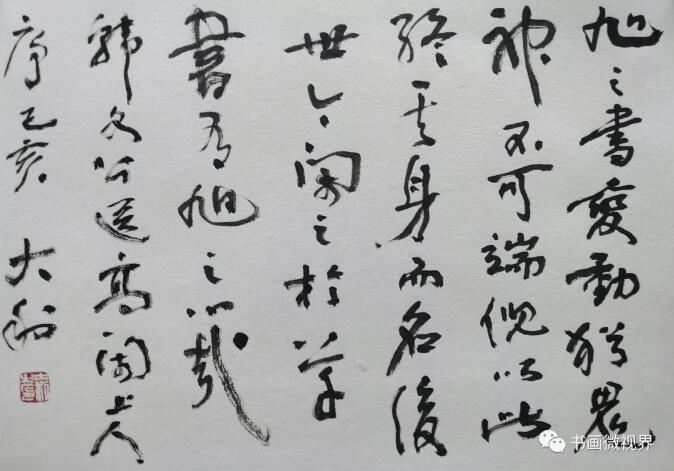 旭之書變動猶鬼
神不可端倪以此
終其身而名後
世今閑之於草
書有旭之心哉
韓文公送高閑上人
序己亥 大和
书画微视界